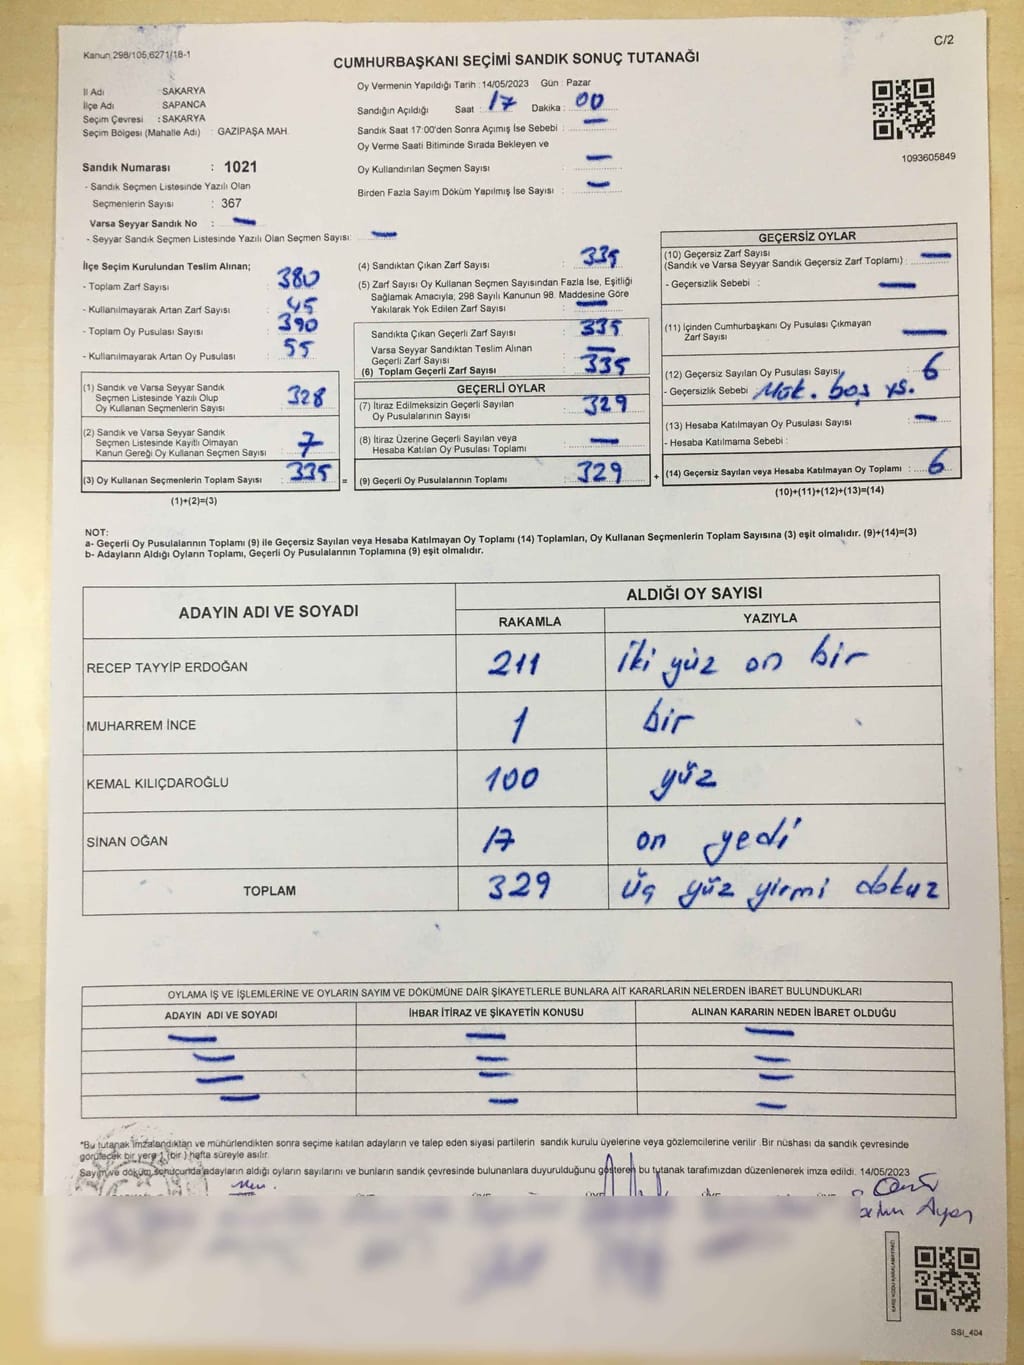 Kanun 298/105,6271/18-1
C/2
CUMHURBAŞKANI SEÇİMİ SANDIK SONUÇ TUTANAĞI
İl Adı : SAKARYA
İlçe Adı : SAPANCA
Seçim Çevresi : SAKARYA
Seçim Bölgesi (Mahalle Adı) : GAZİPAŞA MAH.
Sandık Numarası : 1021
- Sandık Seçmen Listesinde Yazılı Olan
Seçmenlerin Sayısı : 367
Varsa Seyyar Sandık No : —
- Seyyar Sandık Seçmen Listesinde Yazılı Olan Seçmen Sayısı: —
Oy Vermenin Yapıldığı Tarih : 14/05/2023 Gün : Pazar
Sandığın Açıldığı Saat : 17 Dakika : 00
Sandık Saat 17:00'den Sonra Açımış İse Sebebi : —
Oy Verme Saati Bitiminde Sırada Bekleyen ve
Oy Kullandırılan Seçmen Sayısı : —
Birden Fazla Sayım Döküm Yapılmış İse Sayısı : —
1093605849
İlçe Seçim Kurulundan Teslim Alınan;
- Toplam Zarf Sayısı : 380
- Kullanılmayarak Artan Zarf Sayısı : 45
- Toplam Oy Pusulası Sayısı : 390
- Kullanılmayarak Artan Oy Pusulası : 55
(1) Sandık ve Varsa Seyyar Sandık
Seçmen Listesinde Yazılı Olup
Oy Kullanan Seçmenlerin Sayısı : 328
(2) Sandık ve Varsa Seyyar Sandık
Seçmen Listesinde Kayıtlı Olmayan
Kanun Gereği Oy Kullanan Seçmen Sayısı : 7
(3) Oy Kullanan Seçmenlerin Toplam Sayısı : 335 =
(1)+(2)=(3)
(4) Sandıktan Çıkan Zarf Sayısı : 335
(5) Zarf Sayısı Oy Kullanan Seçmen Sayısından Fazla İse, Eşitliği
Sağlamak Amacıyla; 298 Sayılı Kanunun 98. Maddesine Göre
Yakılarak Yok Edilen Zarf Sayısı : —
Sandıkta Çıkan Geçerli Zarf Sayısı : 335
Varsa Seyyar Sandıktan Teslim Alınan
Geçerli Zarf Sayısı : —
(6) Toplam Geçerli Zarf Sayısı : 335
GEÇERLİ OYLAR
(7) İtiraz Edilmeksizin Geçerli Sayılan
Oy Pusulalarının Sayısı : 329
(8) İtiraz Üzerine Geçerli Sayılan veya
Hesaba Katılan Oy Pusulası Toplamı : —
(9) Geçerli Oy Pusulalarının Toplamı : 329 +
GEÇERSİZ OYLAR
(10) Geçersiz Zarf Sayısı
(Sandık ve Varsa Seyyar Sandık Geçersiz Zarf Toplamı) : —
- Geçersizlik Sebebi : —
(11) İçinden Cumhurbaşkanı Oy Pusulası Çıkmayan
Zarf Sayısı : —
(12) Geçersiz Sayılan Oy Pusulası Sayısı : 6
- Geçersizlik Sebebi : Mük. boş ys.
(13) Hesaba Katılmayan Oy Pusulası Sayısı : —
- Hesaba Katılmama Sebebi :
(14) Geçersiz Sayılan veya Hesaba Katılmayan Oy Toplamı : 6
(10)+(11)+(12)+(13)=(14)
NOT:
a- Geçerli Oy Pusulalarının Toplamı (9) ile Geçersiz Sayılan veya Hesaba Katılmayan Oy Toplamı (14) Toplamları, Oy Kullanan Seçmenlerin Toplam Sayısına (3) eşit olmalıdır. (9)+(14)=(3)
b- Adayların Aldığı Oyların Toplamı, Geçerli Oy Pusulalarının Toplamına (9) eşit olmalıdır.
ADAYIN ADI VE SOYADI
ALDIĞI OY SAYISI
RAKAMLA YAZIYLA
RECEP TAYYİP ERDOĞAN 211 iki yüz on bir
MUHARREM İNCE 1 bir
KEMAL KILIÇDAROĞLU 100 yüz
SİNAN OĞAN 17 on yedi
TOPLAM 329 üç yüz yirmi dokuz
OYLAMA İŞ VE İŞLEMLERİNE VE OYLARIN SAYIM VE DÖKÜMÜNE DAİR ŞİKAYETLERLE BUNLARA AİT KARARLARIN NELERDEN İBARET BULUNDUKLARI
ADAYIN ADI VE SOYADI İHBAR İTİRAZ VE ŞİKAYETİN KONUSU ALINAN KARARIN NEDEN İBARET OLDUĞU
*Bu tutanak imzalandıktan ve mühürlendikten sonra seçime katılan adayların ve talep eden siyasi partilerin sandık kurulu üyelerine veya gözlemcilerine verilir. Bir nüshası da sandık çevresinde
görülecek bir yere 1 (bir) hafta süreyle asılır.
Sayım ve döküm sonucunda adayların aldığı oyların sayılarını ve bunların sandık çevresinde bulunanlara duyurulduğunu gösteren bu tutanak tarafımızdan düzenlenerek imza edildi. 14/05/2023
SSI_404